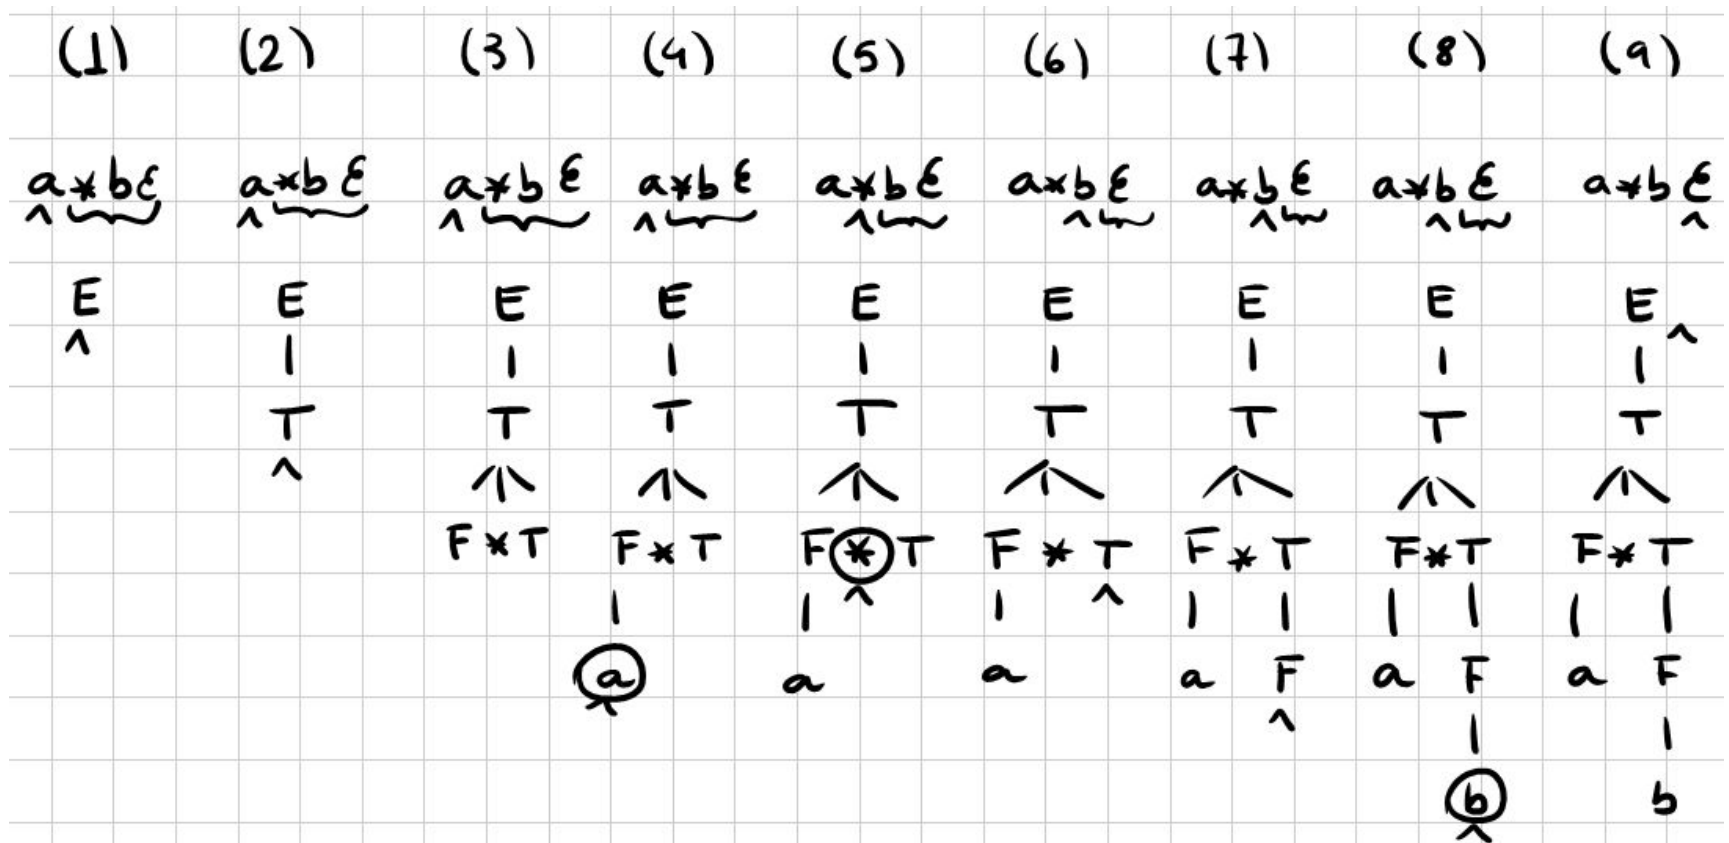 (1) (2) (3) (4) (5) (6) (7) (8) (9)
a*bε a*bε a*bε a*bε a*bε a*bε a*bε a*bε a*bε
E E E E E E E E E
T T T T T T T T
F*T F*T F*T F*T F*T F*T F*T
a a a a F a F a F
b b